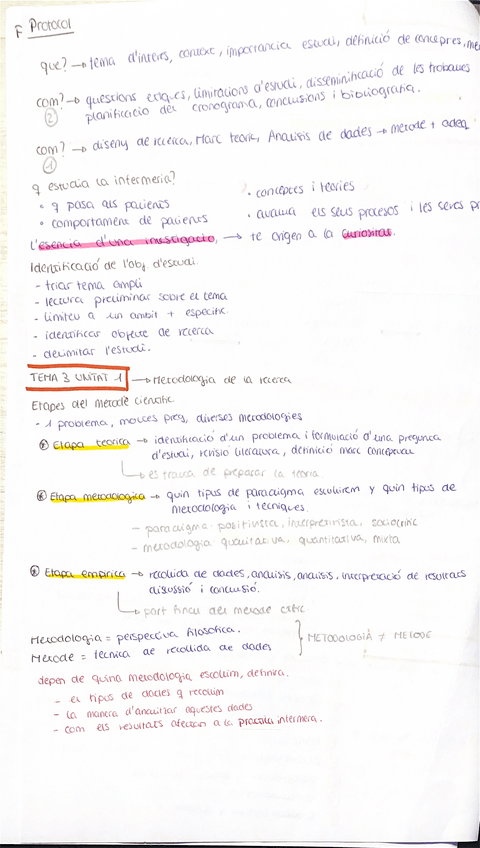 F Protocol
què? → tema d'interès, context, importància estudi, definició de conceptes,
com? → questions ètiques, limitacions d'estudi, disseminificació de les trobades
② planificació del cronograma, conclusions i bibliografia.
com? → disseny de recerca, Marc teòric, Anàlisis de dades → mètode + adeq
①
q estudia la infermeria?
• q pasa als pacients
• comportament de pacients
• conceptes i teories
• avalua els seus processos i les seves
L'esencia d'una investigació, → te origen a la curiositat.
Identificació de l'obj. d'estudi.
- triar tema ampli
- lectura preliminar sobre el tema
- limiteu a un àmbit + específic
- identificar objecte de recerca
- delimitar l'estudi.
TEMA 3 UNITAT 1 → Metodologia de la recerca
Etapes del mètode científic
- 1 problema, moltes preg, diverses metodologies
① Etapa teòrica → identificació d'un problema i formulació d'una pregunta
d'estudi, revisió literatura, definició marc conceptual
es tracta de preparar la teoria.
② Etapa metodologica → quin tipus de paradigma escollirem y quin tipus de
metodologia i tècniques.
- paradigma: positivista, interpretivista, sociocrític
- metodologia: qualitativa, quantitativa, mixta
③ Etapa empírica → recollida de dades, anàlisis, anàlisis, interpretació de resultats
discussió i conclusió.
part final del mètode cientific
Metodologia = perspectiva filosofica.
Metode = tècnica de recollida de dades
METODOLOGIÀ ≠ METODE
depen de quina metodologia escollim, definirà.
- el tipus de dades q recollim
- la manera d'analitzar aquestes dades
- com els resultats afecten a la pràctica infermera.